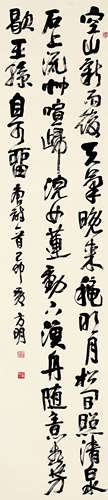 空山新雨後天氣晚来秋明月松間照清泉
石上流竹喧歸浣女蓮動下漁舟随意春芳
歇王孫自可留 唐詩一首 己卯 方明